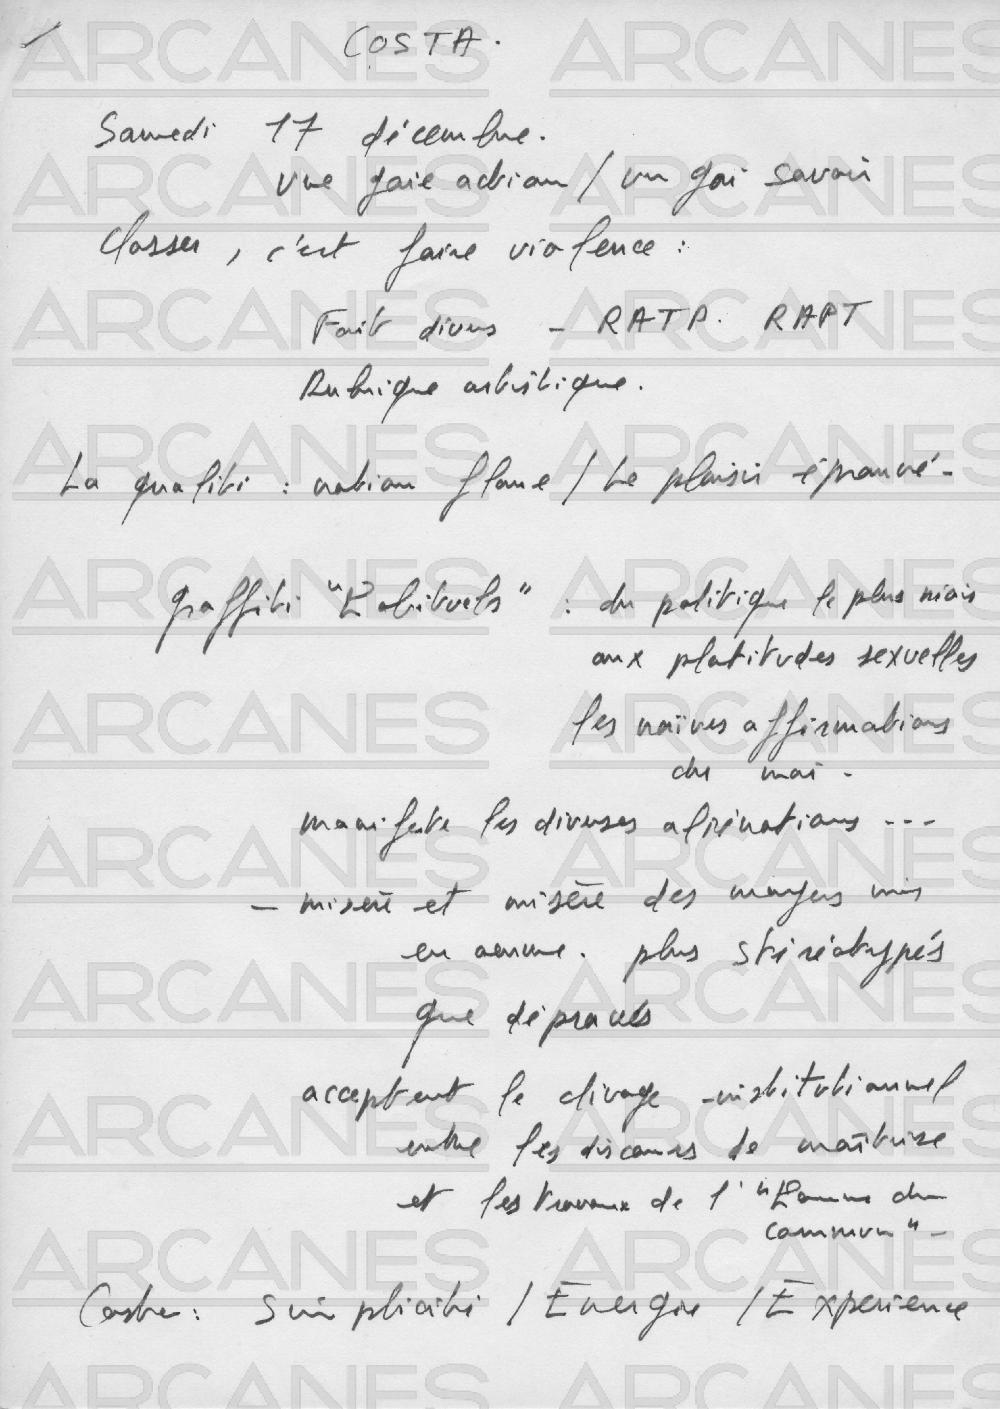 COSTA.
Samedi 17 décembre.
une gaie action / un gai savoir
Classer, c'est faire violence :
Fait divers - RATP. RAPT
Rubrique artistique.
La qualité : notion floue / Le plaisir éprouvé -
graffiti "habituels" : du politique le plus niais
aux platitudes sexuelles
les naïves affirmations
du moi -
manifeste les diverses aliénations ---
- misère et misère des moyens mis
en œuvre. plus stéréotypés
que dépravés
acceptent le clivage institutionnel
entre les discours de maîtrise
et les travaux de l'"homme du
commun" -
Costa : Simplicité / Énergie / Expérience